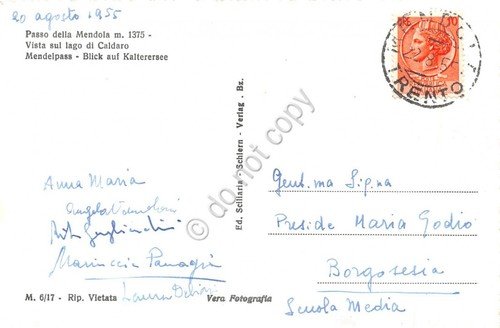 20 agosto 1955
Passo della Mendola m. 1375 -
Vista sul lago di Caldaro
Mendelpass - Blick auf Kalterersee
TRENTO
Ed. Sciliaria - Schlern - Verlag . Bz.
© do not copy
Anna Maria
Angela
Mariuccia
Laura
Gent.ma Sig.na
Preside Maria Godio
Borgosesia
Scuola Media
M. 6/17 - Rip. Vietata
Vera Fotografia